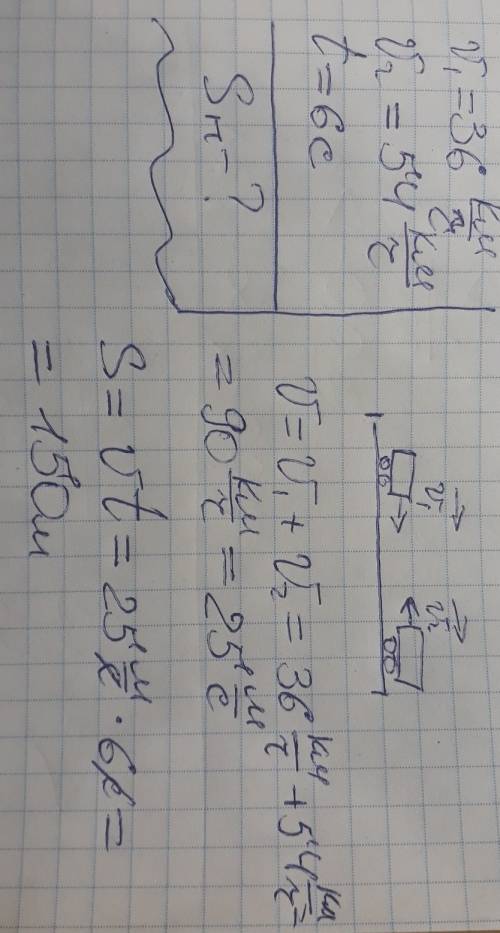 v₁ = 36 км/г
v₂ = 54 км/г
t = 6с
Sп - ?
v₁
v₂
v = v₁ + v₂ = 36 км/г + 54 км/г =
= 90 км/г = 25 м/с
S = vt = 25 м/с · 6с =
= 150м